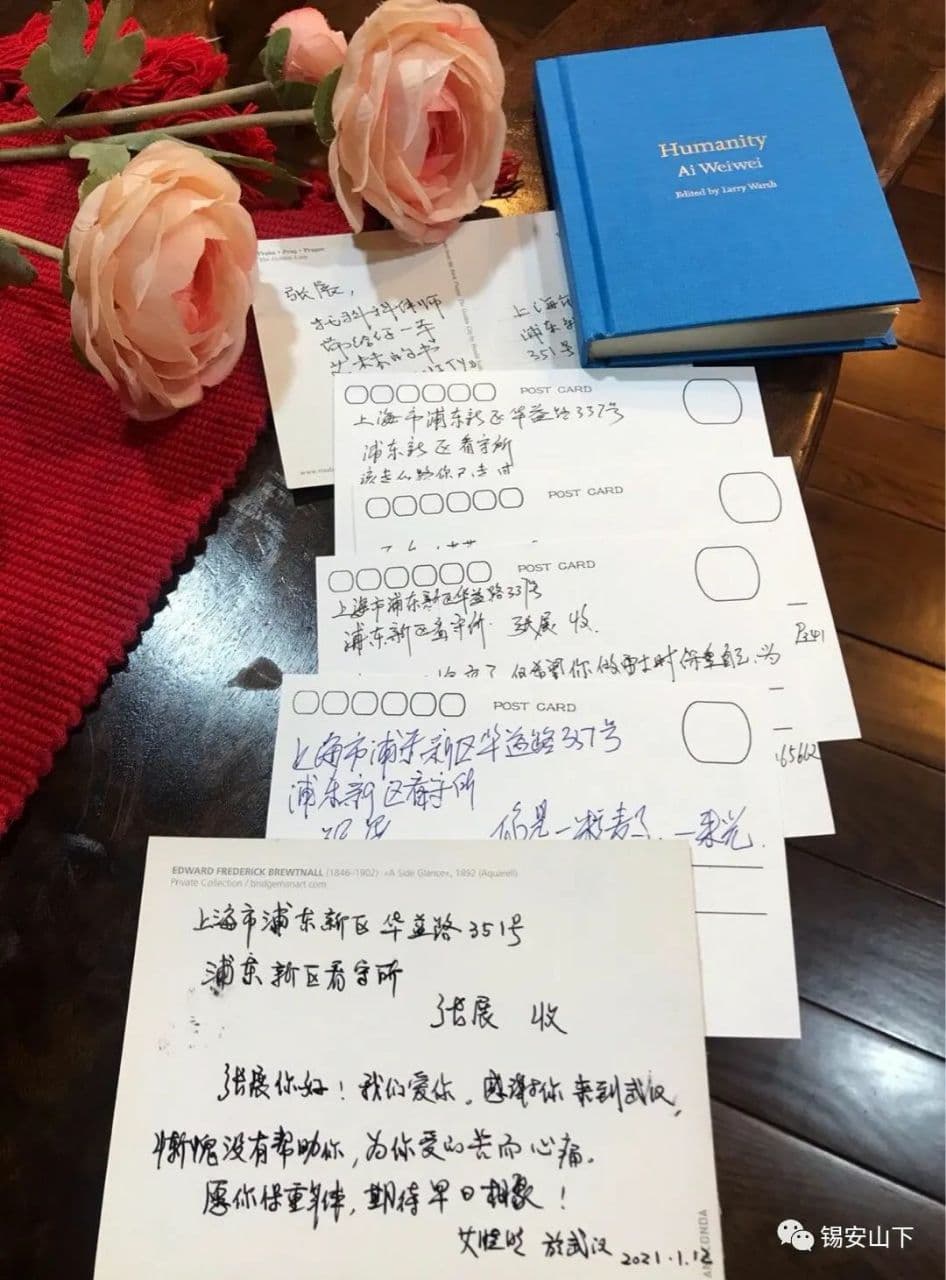 Humanity
Ai Weiwei
Edited by Larry Warsh
Praha • Prag • Prague
The Golden Lane
张展,
艾未未的书
上海市
浦东新
351号
POST CARD
上海市浦东新区华益路351号
浦东新区看守所
POST CARD
POST CARD
上海市浦东新区华益路351号
浦东新区看守所 张展 收
但希望你做勇士时保重自己,为
POST CARD
上海市浦东新区华益路351号
浦东新区看守所
你是一粒麦子,一束光.
EDWARD FREDERICK BREWTNALL (1846–1902) «A Side Glance», 1892 (Aquarell)
Private Collection / bridgemanart.com
上海市浦东新区华益路351号
浦东新区看守所
张展 收
张展你好!我们爱你。感谢你来到武汉,
惭愧没有帮助你,为你受的苦而心痛。
愿你保重身体,期待早日相聚!
艾晓明 於武汉 2021.1.12
锡安山下